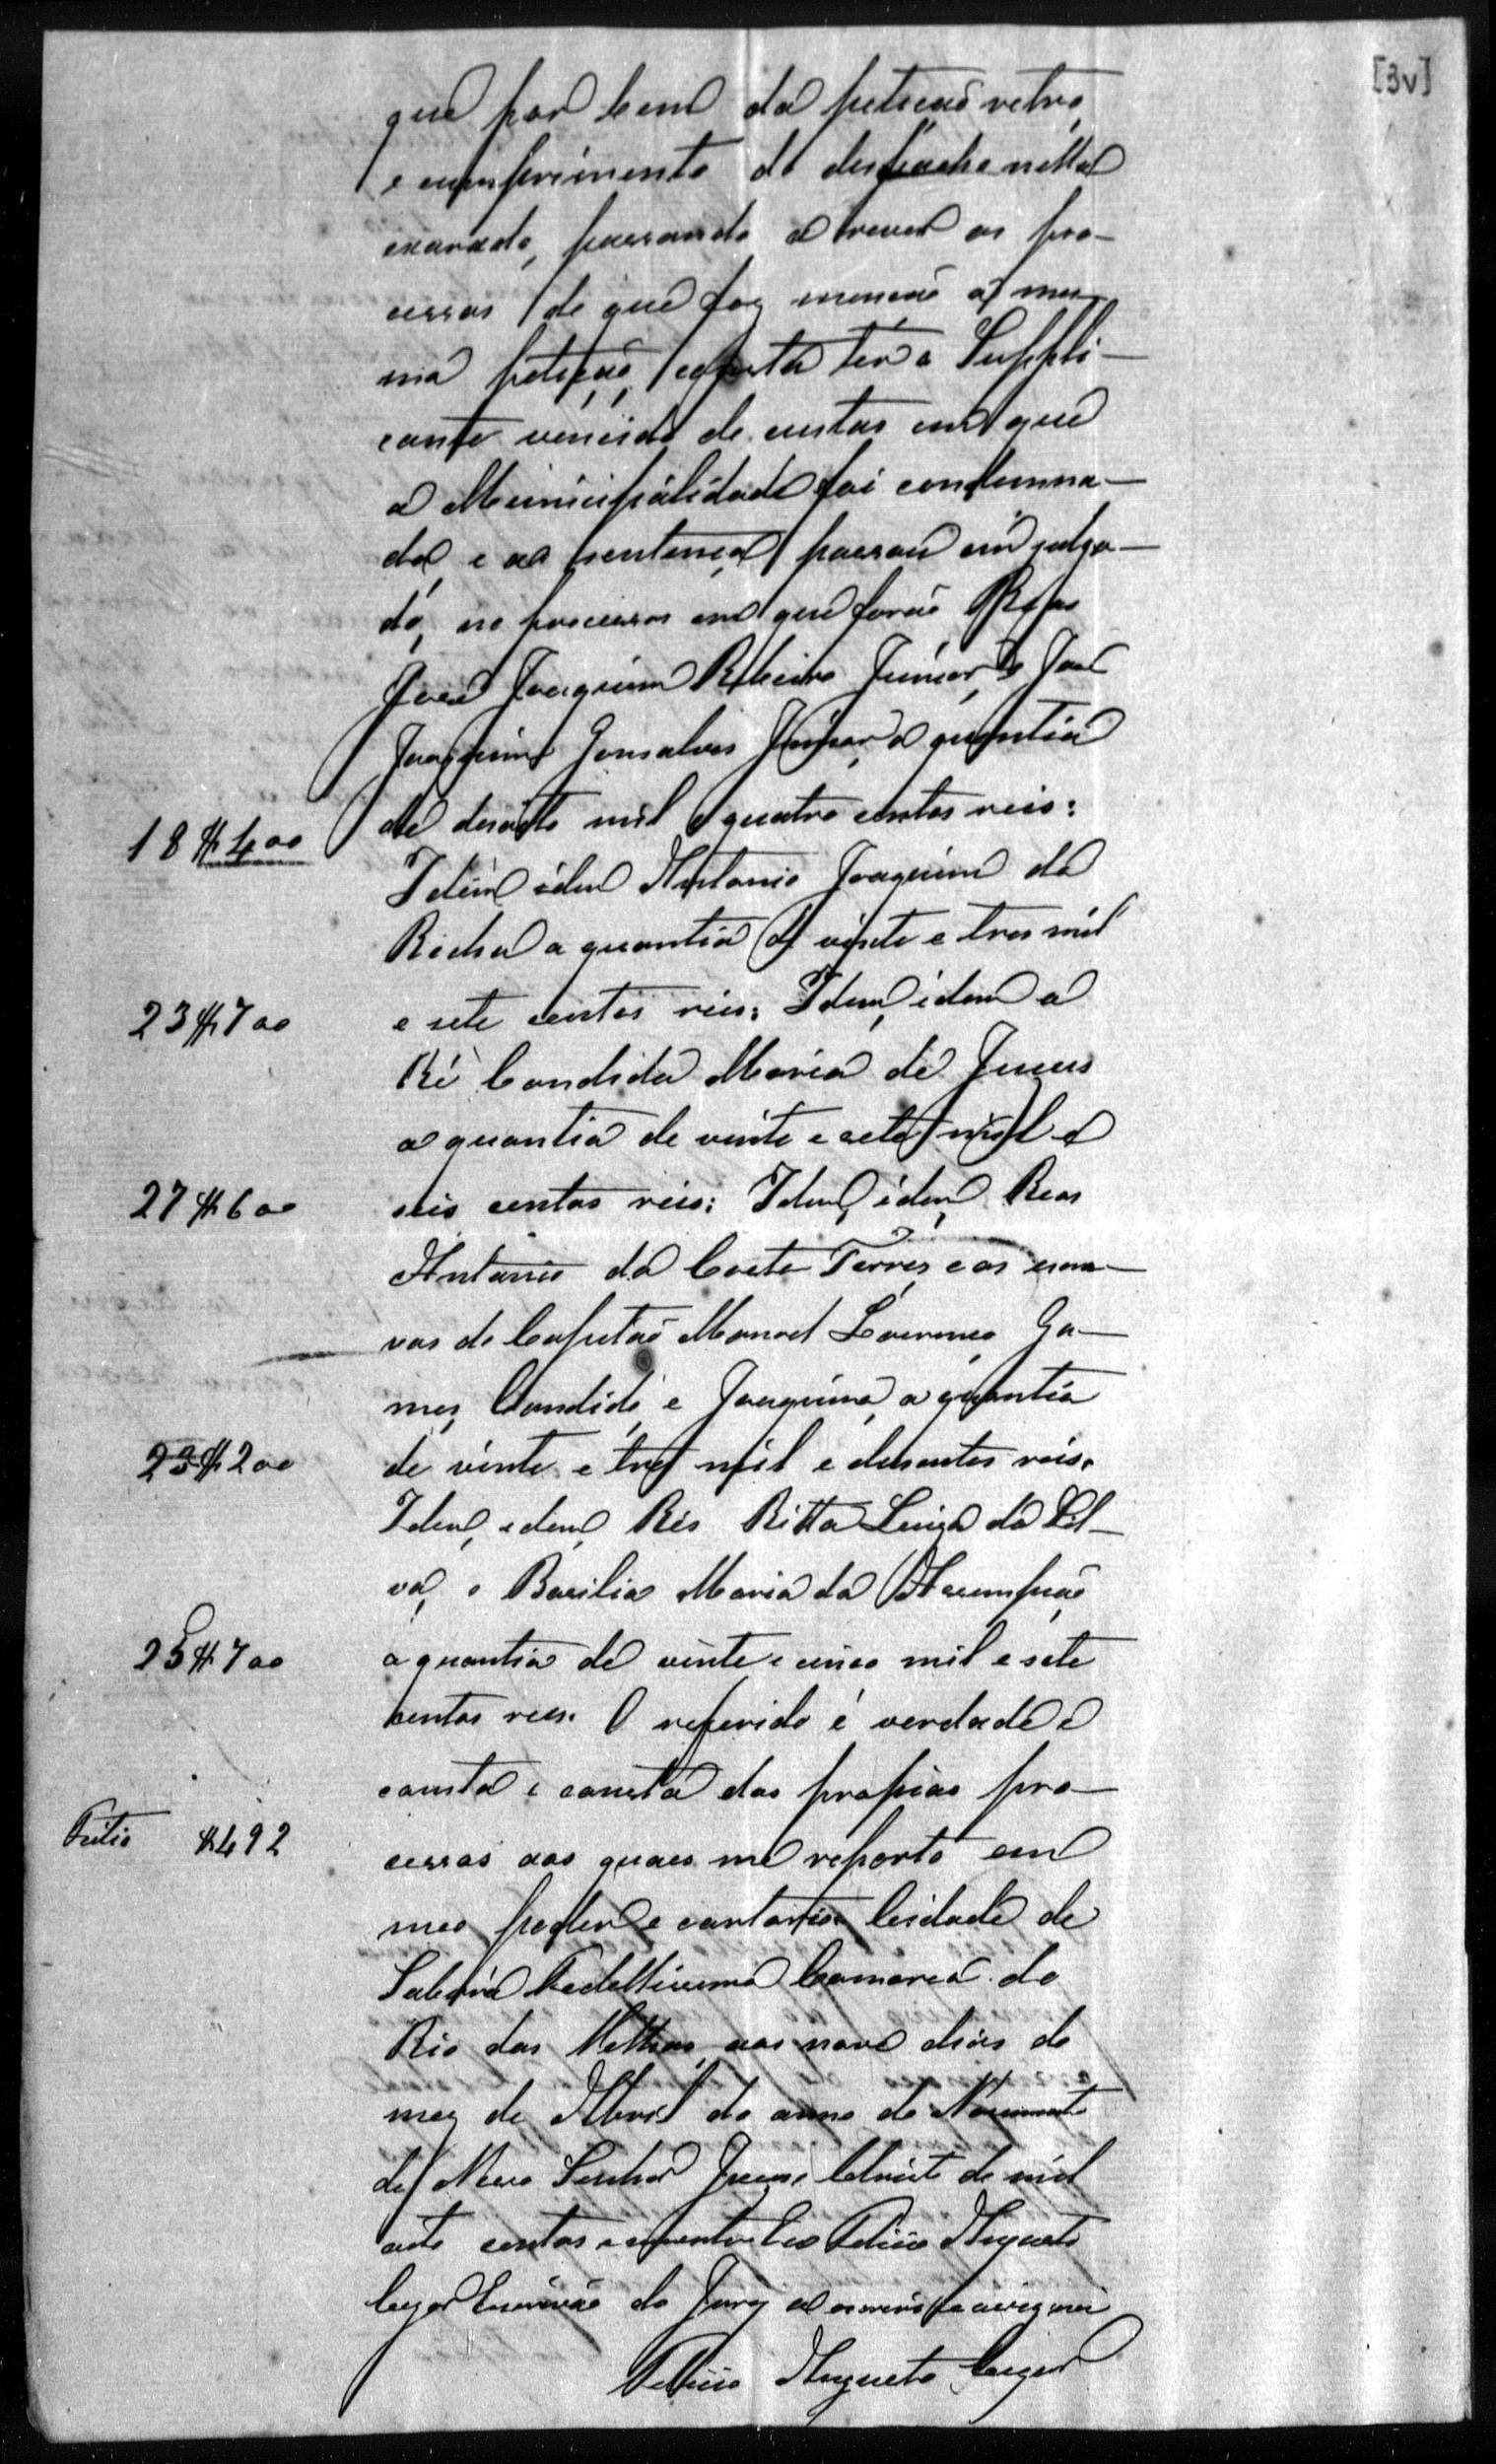 [3v]
que por bem da petição retro,
e cumprimento do despacho nella
exarado, passando a rever os pro-
cessos de que faz menção a mes-
ma petição, consta ter o Suppli-
cante vencido de custas em que
a Municipalidade foi condemna-
da, e as sentença passou em julga-
do, no processos em que forão Reos
José Joaquim Ribeiro Junior, e José
Joaquim Gonsalves Junior, a quantia
18$400 de desoito mil e quatro centos reis:
Idem idem Antonio Joaquim da
Rocha a quantia de vinte e tres mil
23$700 e sete centos reis: Idem, idem a
Ré Candida Maria de Jesus
a quantia de vinte e sete mil e
27$600 seis centos reis: Idem, idem, Reos
Antonio da Costa Torres, e os escra-
vos do Capitão Manoel Lourenço Go-
mes, Candido, e Joaquima, a quantia
23$200 de vinte e tres mil e dusentos reis.
Idem, idem, Rés Ritta Luiza da Sil-
va, e Basilia Maria da Assumpção
25$700 a quantia de vinte e cinco mil e sete
centos reis. O referido é verdade e
consta e consta dos propios pro-
Feitio $492 cessos aos quaes me reporto em
meo poder e cartorio. Cidade de
Sabará Fidellissima Comarca do
Rio das Velhas, aos nove dias do
mez de Abril do anno do Nascimento
de Nosso Senhor Jesus Christo de mil
oito centos e Eu Felicio Augusto
Cezar Escrivão do Jury a escrevi e assignei
Felicio Augusto Cezar